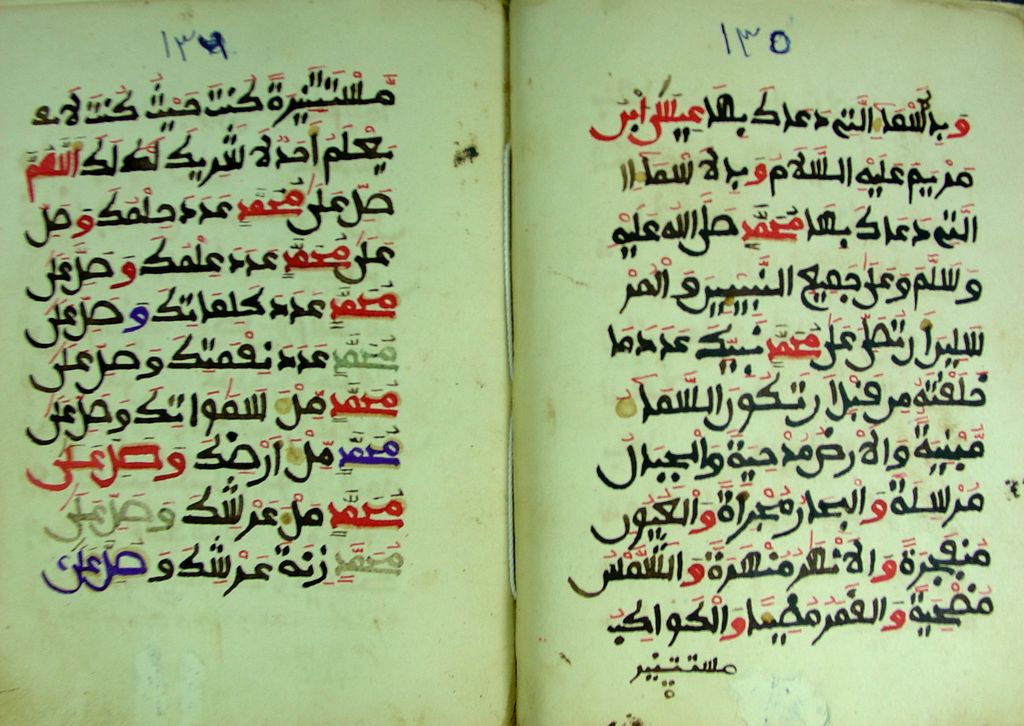 ١٣٥
وَبِالْأَسْمَاءِ الَّتِي دَعَاكَ بِهَا عِيسَى ابْنُ
مَرْيَمَ عَلَيْهِ السَّلَامُ وَبِالْأَسْمَاءِ
الَّتِي دَعَاكَ بِهَا مُحَمَّدٌ صَلَّى اللَّهُ عَلَيْهِ
وَسَلَّمَ وَعَلَى جَمِيعِ النَّبِيِّينَ وَالْمُرْ
سَلِينَ أَنْ تُصَلِّيَ عَلَى مُحَمَّدٍ نَبِيِّكَ عَدَدَ مَا
خَلَقْتَهُ مِنْ قَبْلِ أَنْ تَكُونَ السَّمَاءُ
مَبْنِيَّةً وَالْأَرْضُ مَدْحِيَّةً وَالْجِبَالُ
مُرْسَلَةً وَالْبِحَارُ مُجْرَاةً وَالْعُيُونُ
مُنْفَجِرَةً وَالْأَنْهَارُ مُنْهَمِرَةً وَالشَّمْسُ
مُضْحِيَةً وَالْقَمَرُ مُضِيئًا وَالْكَوَاكِبُ
مستنير
١٣٦
مُسْتَنِيرَةً كُنْتَ حَيْثُ كُنْتَ لَا
يَعْلَمُ أَحَدٌ لَا شَرِيكَ لَكَ اللَّهُمَّ
صَلِّ عَلَى مُحَمَّدٍ عَدَدَ حِلْمِكَ وَصَلِّ
عَلَى مُحَمَّدٍ عَدَدَ عِلْمِكَ وَصَلِّ عَلَى
مُحَمَّدٍ عَدَدَ كَلِمَاتِكَ وَصَلِّ عَلَى
مُحَمَّدٍ عَدَدَ نِعْمَتِكَ وَصَلِّ عَلَى
مُحَمَّدٍ مِلْءَ سَمَوَاتِكَ وَصَلِّ عَلَى
مُحَمَّدٍ مِلْءَ أَرْضِكَ وَصَلِّ عَلَى
مُحَمَّدٍ مِلْءَ عَرْشِكَ وَصَلِّ عَلَى
مُحَمَّدٍ زِنَةَ عَرْشِكَ وَصَلِّ عَلَى